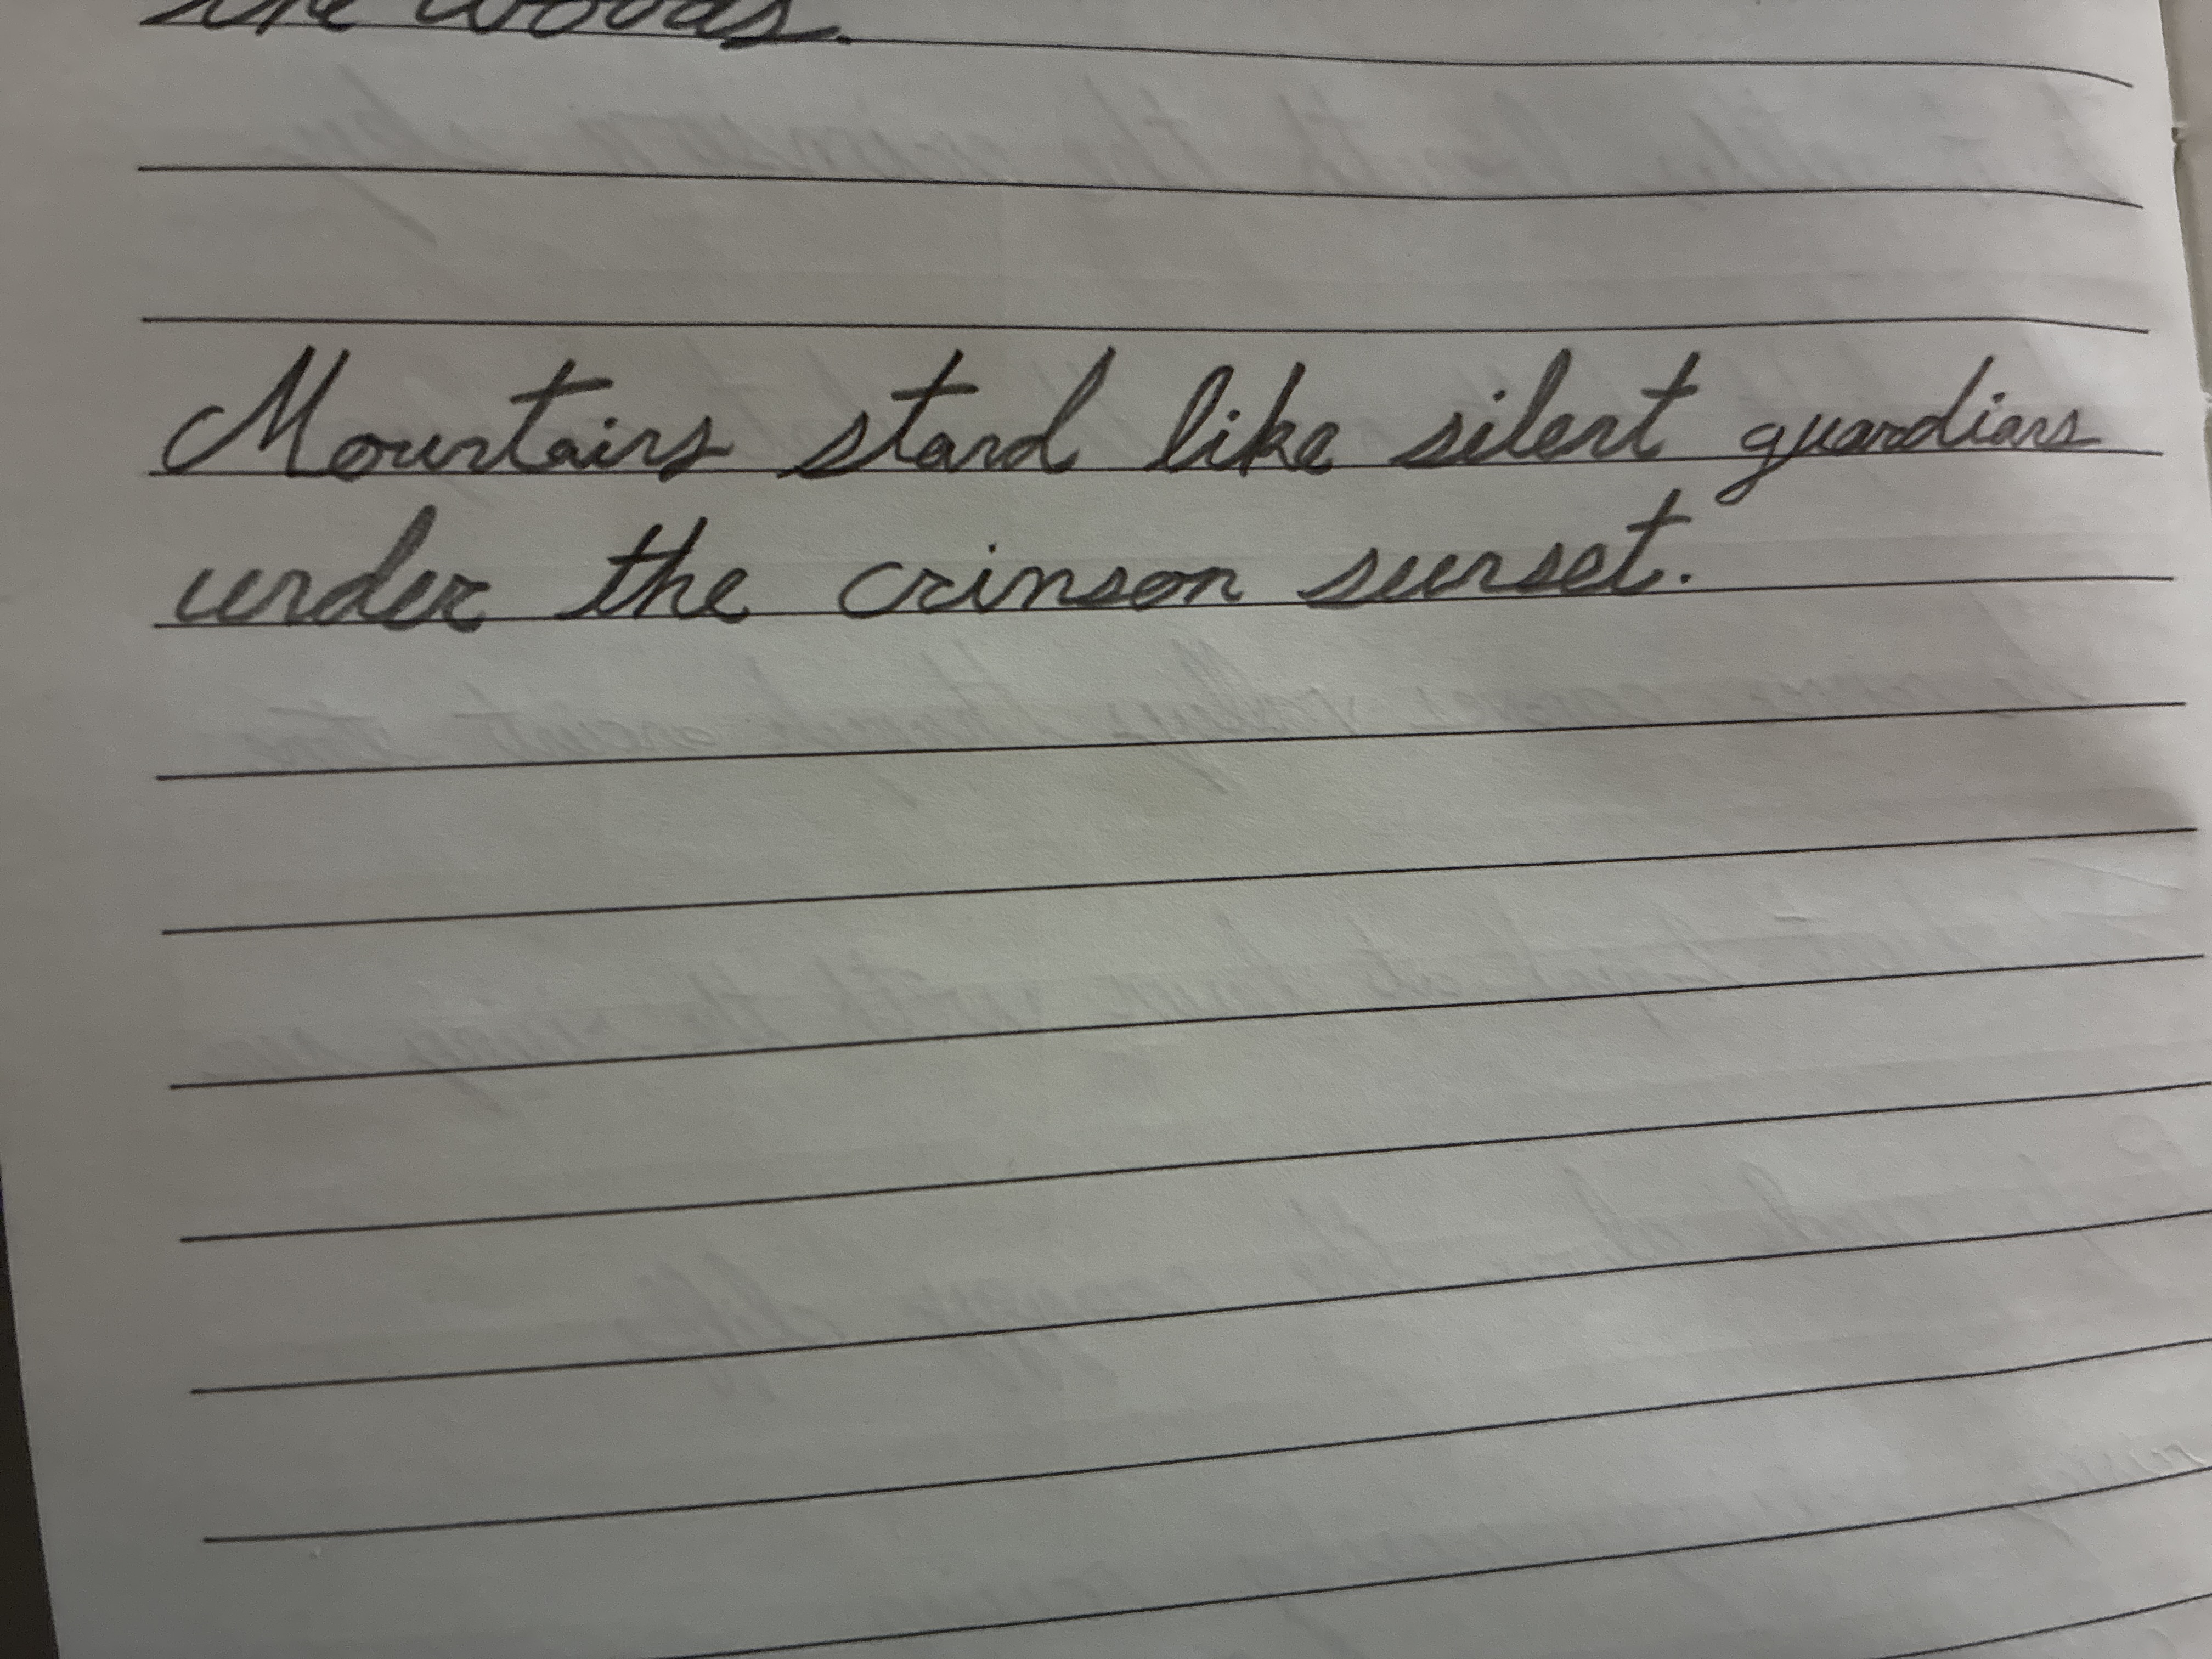 the woods.
Mountains stand like silent guardians
under the crimson sunset.